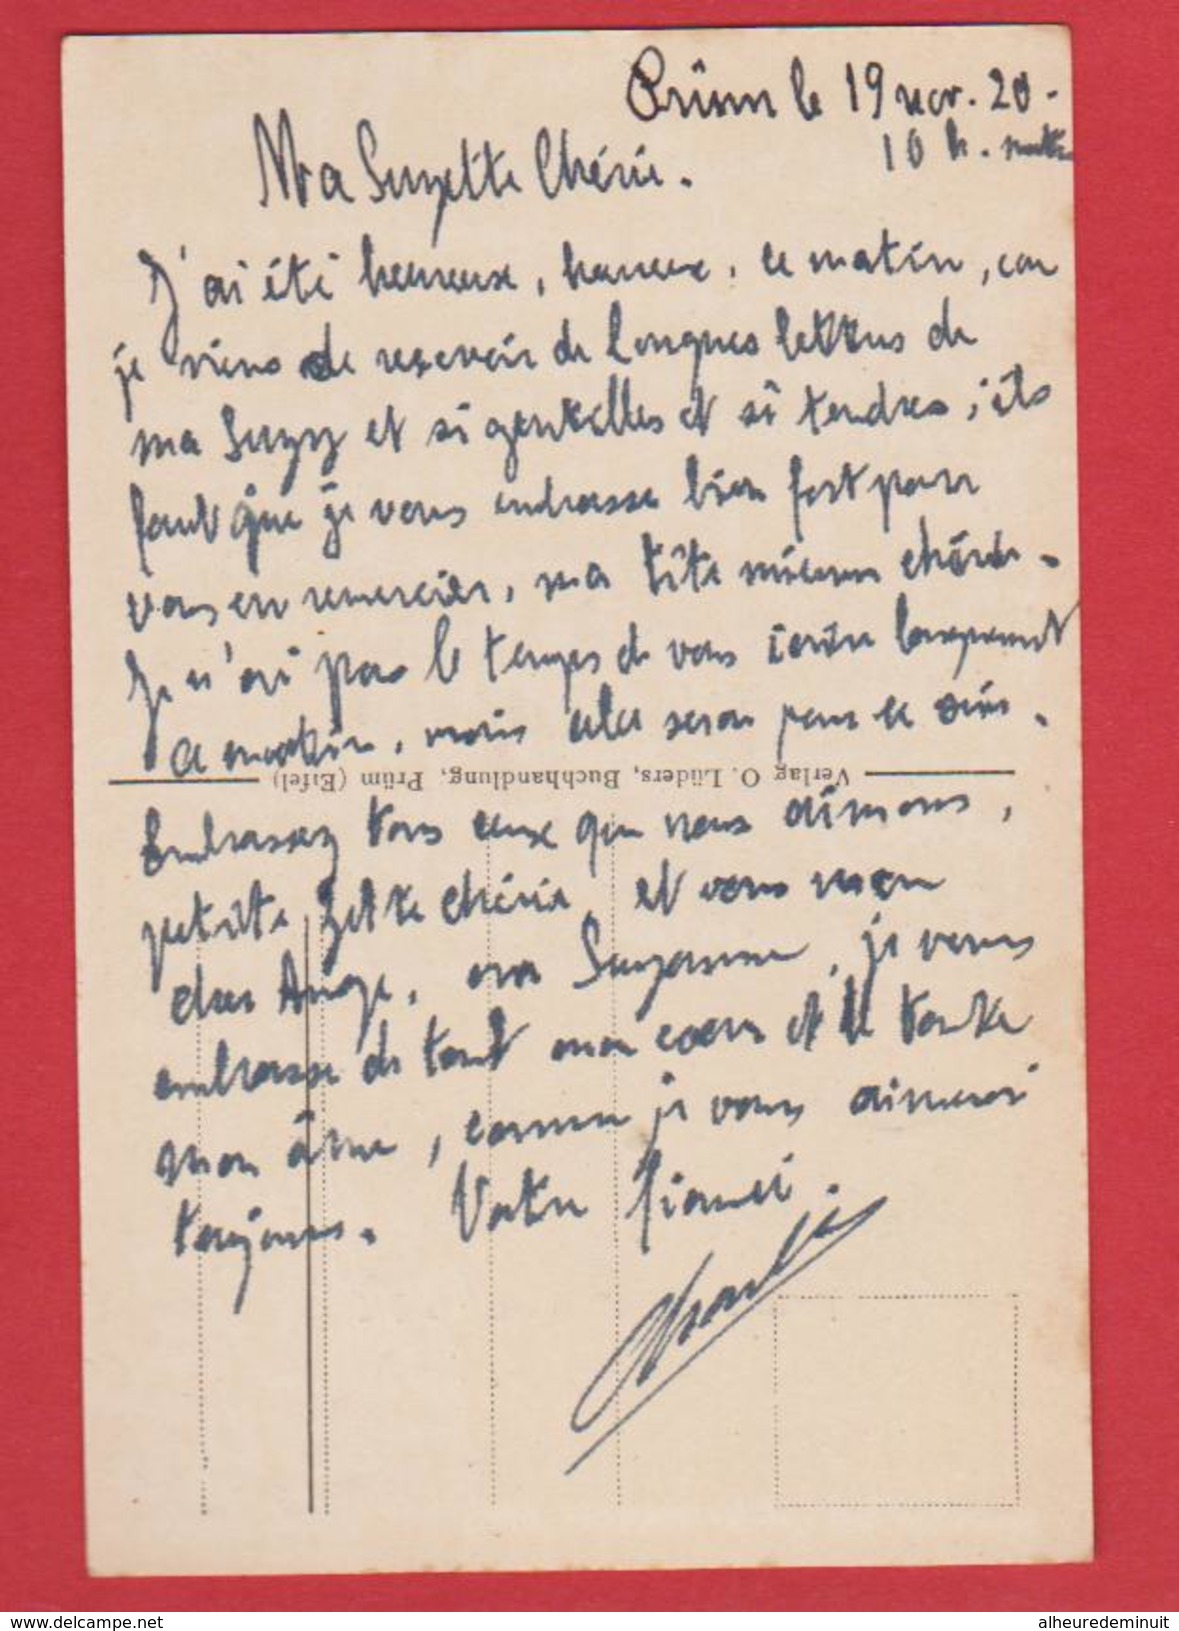 Prüm le 19 nov. 20 -
10 h. matin
Ma Suzette Chérie.
J'ai été heureux, heureux, ce matin, car
je viens de recevoir de longues lettres de
ma Suzy et si gentilles et si tendres ; ils
faut que je vous embrasse bien fort pour
vous en remercier, ma tite mienne chérie.
Je n'ai pas le temps de vous écrire longuement
ce matin, mais cela sera pour ce soir.
Verlag O. Lüders, Buchhandlung, Prüm (Eifel)
Embrassez tous ceux que nous aimons,
petite Zette chérie et vous mon
cher Ange, ma Suzanne, je vous
embrasse de tout mon coeur et de toute
mon âme, comme je vous aimerai
toujours. Votre fiancé.
Charles
Publicité sur www.delcampe.net
alheuredeminuit